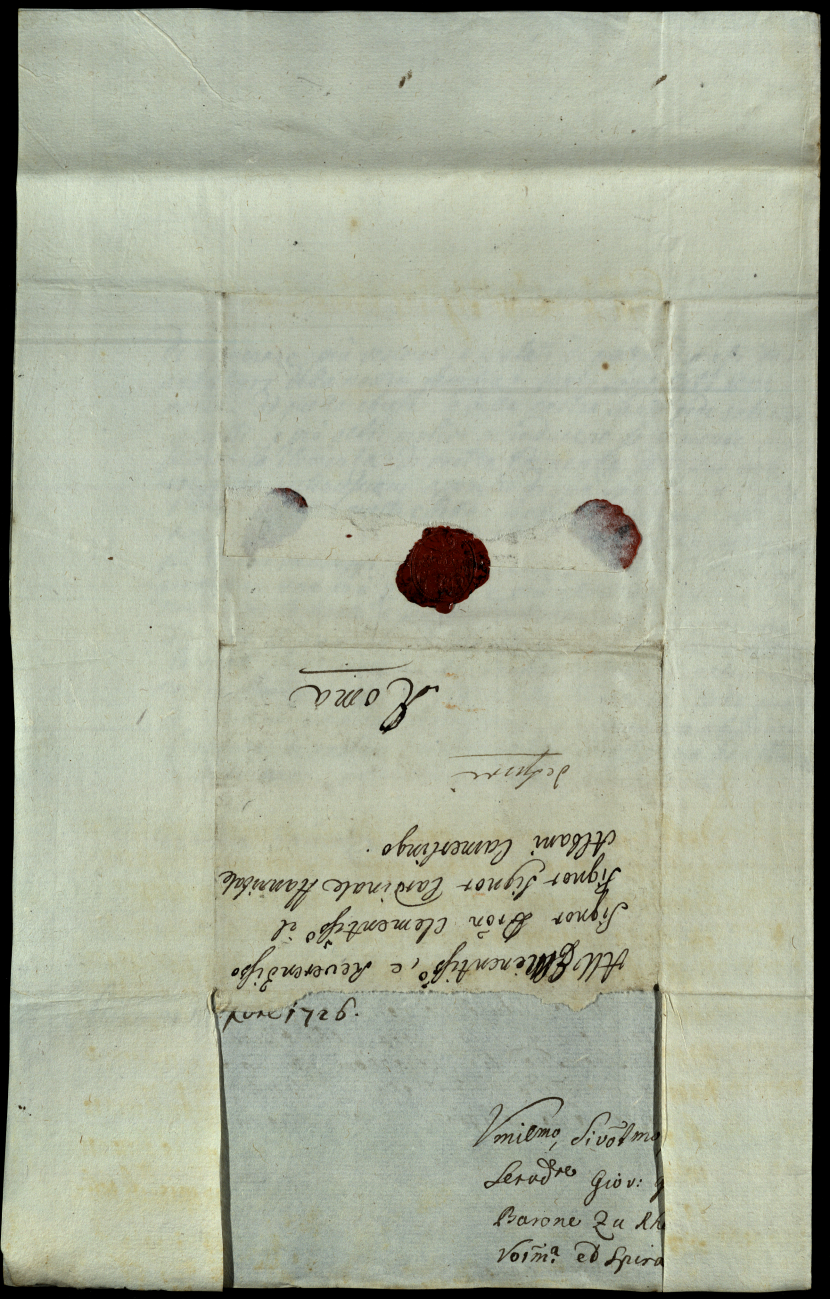 All Eminentisso, e Reverendisso
Signor Pron Clementisso il
Signor Signor Cardinale Hannibale
Albani Camerlingo.
Roma
1726.
Vmilmo, Divotmo
Servdre Giov:
Barone Zu Rh
Vormª. ed Spira